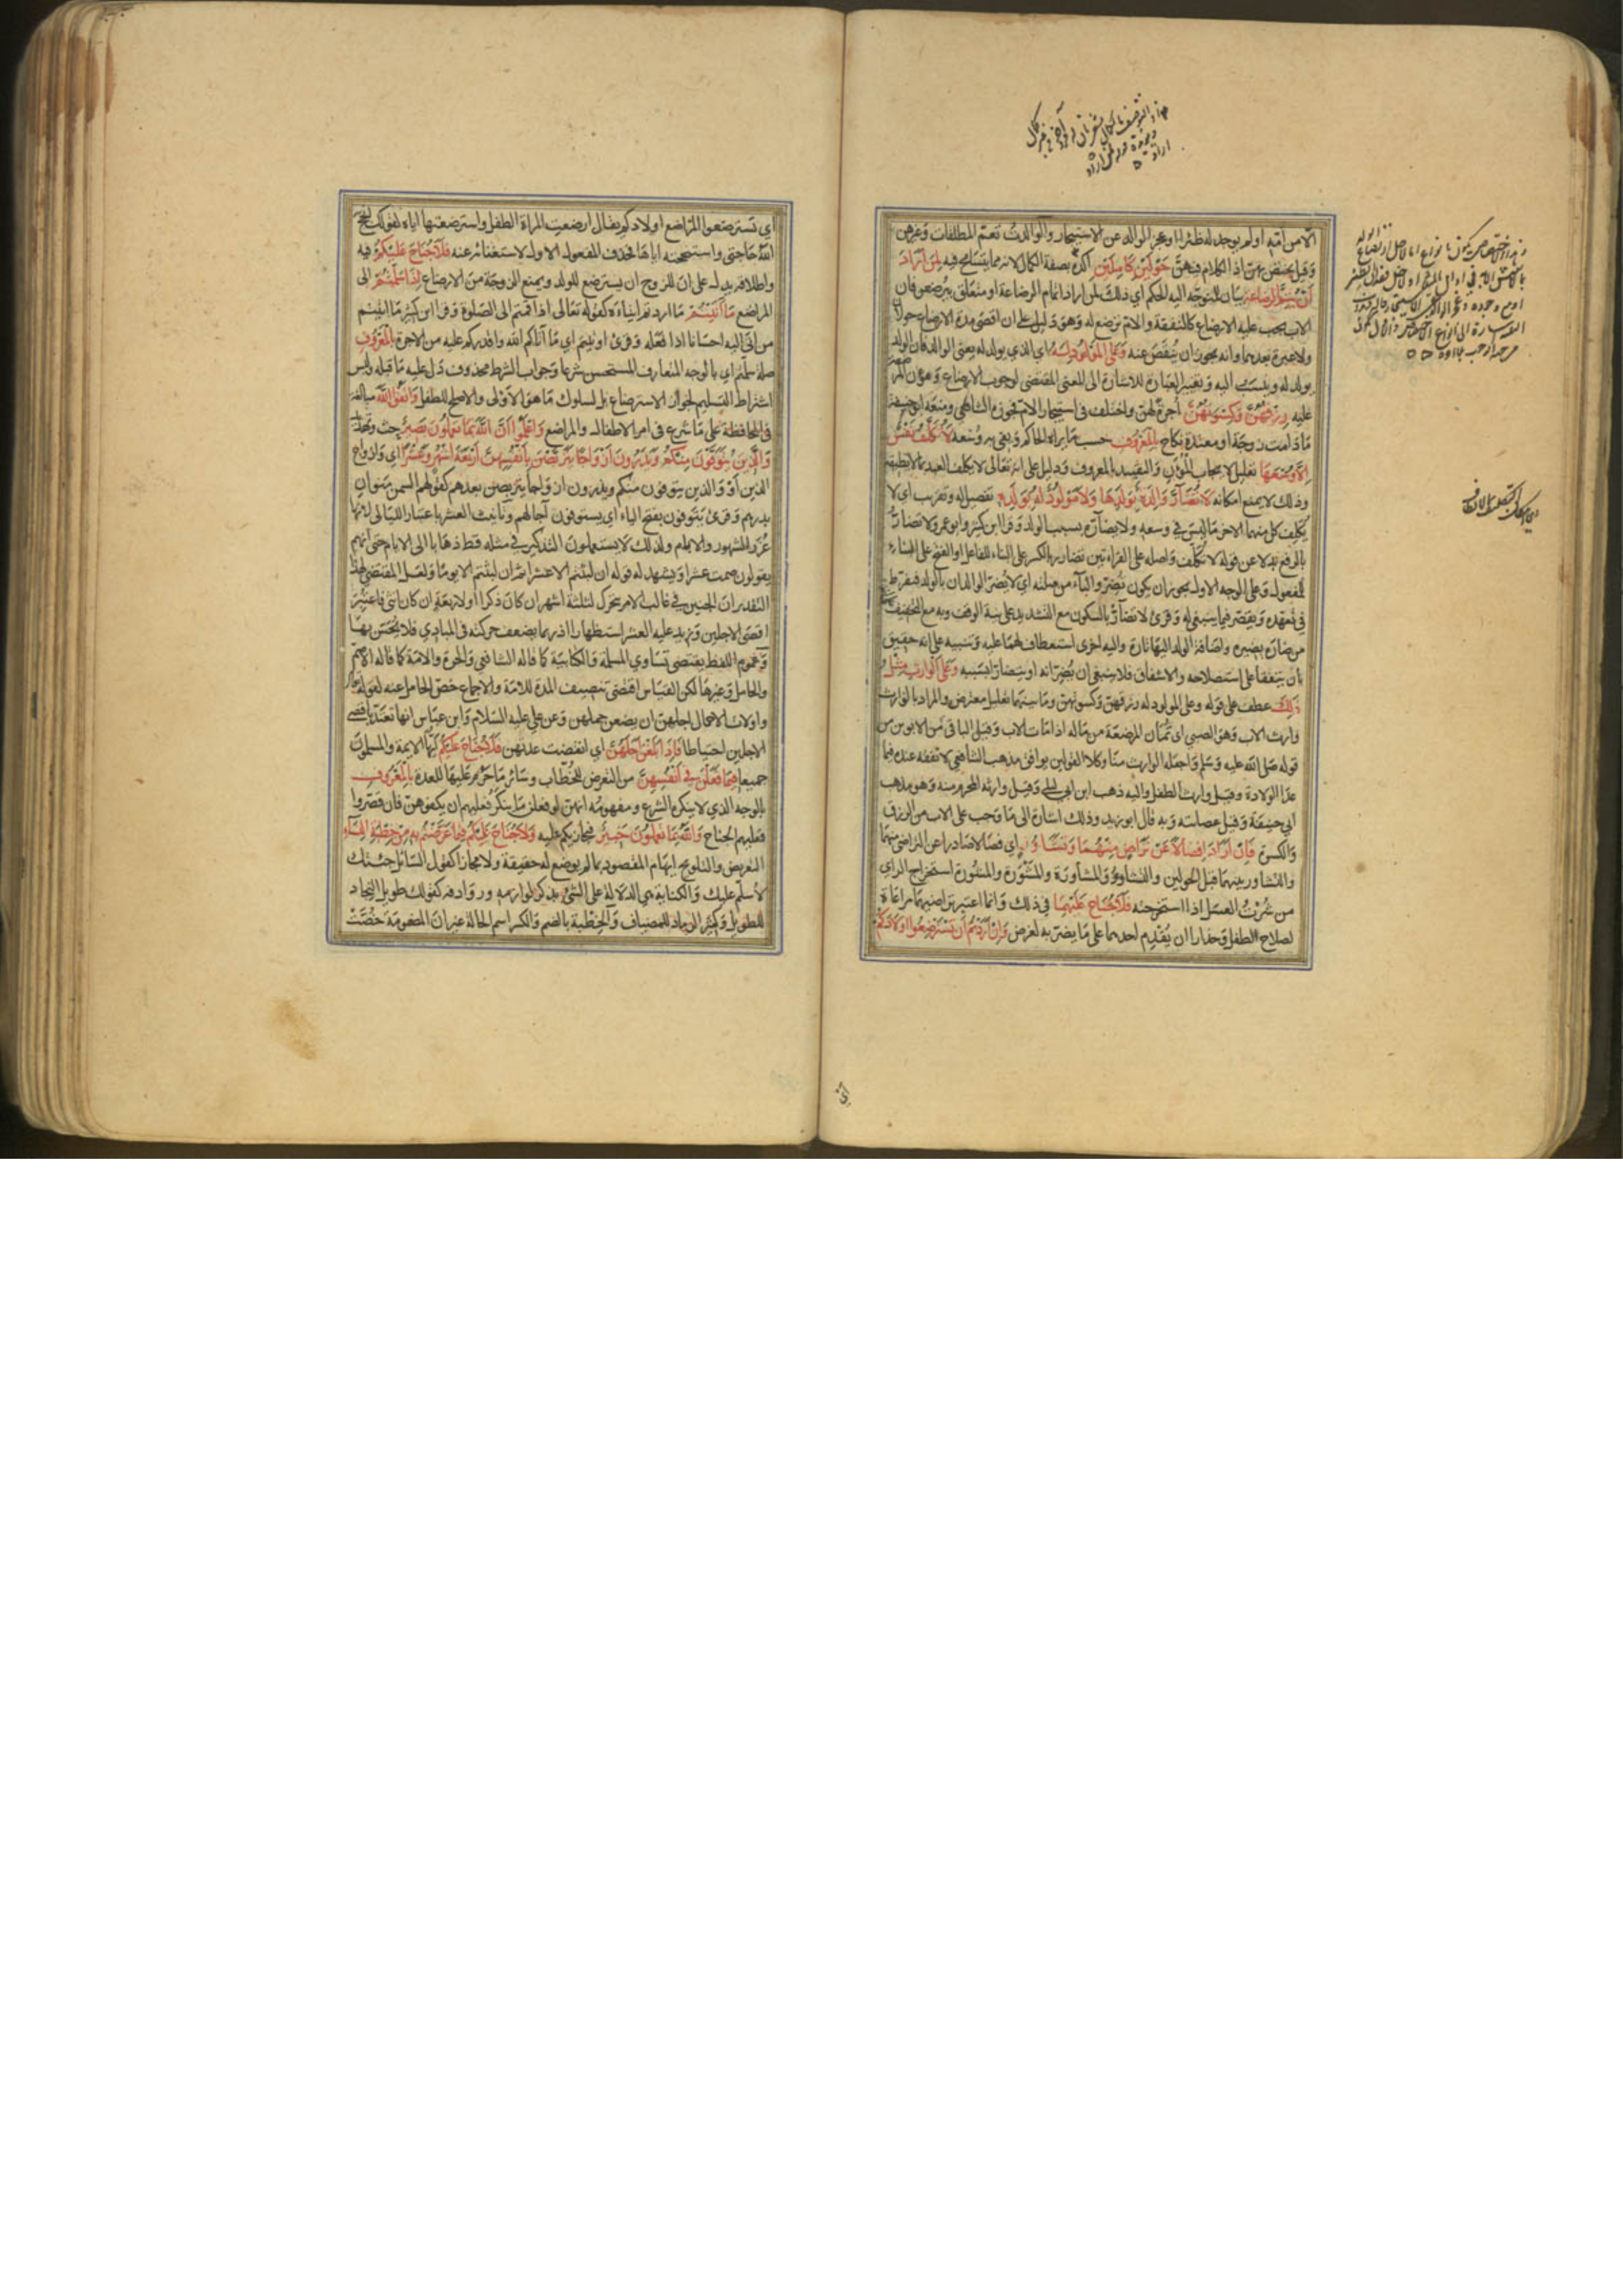 الا من امه او لم يوجد له ظئر او عجز الوالد عن الاستيجار والوالدات تعم المطلقات وغيرهن
وقيل يختص بهن اذ الكلام فيهن حولين كاملين اكده بصفة الكمال لانه مما يتسامح فيه لمن اراد
ان يتم الرضاعة بيان للمتوجه اليه الحكم اي ذلك لمن اراد اتمام الرضاعة او متعلق بيرضعن فان
الاب يجب عليه الارضاع كالنفقة والام ترضع له وهو دليل على ان اقصى مدة الارضاع حولان
ولا عبرة بعدهما وانه يجوز ان ينقص عنه وعلى المولود له اي الذي يولد له يعني الوالد فان الولد
يولد له وينسب اليه وتغيير العبارة للاشارة الى المعنى المقتضي لوجوب الارضاع ومؤن المرضعة
عليه رزقهن وكسوتهن اجرة لهن واختلف في استيجار الام فجوزه الشافعي ومنعه ابو حنيفة
ما دامت زوجة او معتدة نكاح بالمعروف حسب ما يراه الحاكم ويفي به وسعه لا تكلف نفس
الا وسعها تعليل لايجاب المؤن والتقييد بالمعروف ودليل على انه تعالى لا يكلف العبد بما لا يطيقه
وذلك لا يمنع امكانه لا تضار والدة بولدها ولا مولود له بولده تفصيل له وتقريب اي لا
يكلف كل منهما الاخر ما ليس في وسعه ولا يضاره بسبب الولد وقرا ابن كثير وابو عمرو لا تضار
بالرفع بدلا عن قوله لا تكلف واصله على القراءتين تضارر بالكسر على البناء للفاعل او الفتح على البناء
للمفعول وعلى الوجه الاول يجوز ان يكون بمعنى تضر والباء من صلته اي لا يضر الوالدان بالولد فيفرط
في تعهده ويقصر فيما ينبغي له وقرئ لا تضار بالسكون مع التشديد على نية الوقف وبه مع التخفيف
من ضاره يضيره واضافة الولد اليها تارة واليه اخرى استعطاف لهما عليه وتنبيه على انه حقيق
بان يتفقا على استصلاحه والاشفاق فلا ينبغي ان يضرا به او يتضارا بسببه وعلى الوارث مثل
ذلك عطف على قوله وعلى المولود له رزقهن وكسوتهن وما بينهما تعليل معترض والمراد بالوارث
وارث الاب وهو الصبي اي تمان المرضعة من ماله اذا مات الاب وقيل الباقي من الابوين من
قوله صلى الله عليه وسلم واجعله الوارث منا وكلا القولين يوافق مذهب الشافعي لا نفقة عنده فيما
عدا الولادة وقيل وارث الطفل واليه ذهب ابن ابي ليلى وقيل وارثه المحرم منه وهو مذهب
ابي حنيفة وقيل عصابته وبه قال ابو زيد وذلك اشارة الى ما وجب على الاب من الرزق
والكسوة فان ارادا فصالا عن تراض منهما وتشاور اي فصالا صادرا عن التراضي منهما
والتشاور بينهما قبل الحولين والتشاور والمشاورة والمشورة والمشورة استخراج الراي
من شرت العسل اذا استخرجته فلا جناح عليهما في ذلك وانما اعتبر تراضيهما مراعاة
لصلاح الطفل وحذارا ان يقدم احدهما على ما يضر به لغرض وان اردتم ان تسترضعوا اولادكم
اي تسترضعوا المراضع اولادكم يقال ارضعت المراة الطفل واسترضعتها اياه كقولك انجح
الله حاجتي واستنجحته اياها فحذف المفعول الاول للاستغناء عنه فلا جناح عليكم فيه
واطلاقه يدل على ان للزوج ان يسترضع للولد ويمنع الزوجة من الارضاع اذا سلمتم الى
المراضع ما آتيتم ما اردتم ايتاءه كقوله تعالى اذا قمتم الى الصلوة وقرا ابن كثير ما اتيتم
من اتى اليه احسانا اذا فعله وقرئ اوتيتم اي ما آتاكم الله واقدركم عليه من الاجرة بالمعروف
صلة سلمتم اي بالوجه المتعارف المستحسن شرعا وجواب الشرط محذوف دل عليه ما قبله وليس
اشتراط التسليم لجواز الاسترضاع بل لسلوك ما هو الاولى والاصلح للطفل واتقوا الله مبالغة
في المحافظة على ما شرع في امر الاطفال والمراضع واعلموا ان الله بما تعملون بصير حث وتهديد
والذين يتوفون منكم ويذرون ازواجا يتربصن بانفسهن اربعة اشهر وعشرا اي وازواج
الذين او والذين يتوفون منكم ويذرون ازواجا يتربصن بعدهم كقولهم السمن منوان
بدرهم وقرئ يتوفون بفتح الياء اي يستوفون آجالهم وتانيث العشر باعتبار الليالي لانها
غرر الشهور والايام ولذلك لا يستعملون التذكير في مثله قط ذهابا الى الايام حتى انهم
يقولون صمت عشرا ويشهد له قوله ان لبثتم الا عشرا ثم ان لبثتم الا يوما ولعل المقتضي لهذا
التقدير ان الجنين في غالب الامر يتحرك لثلثة اشهر ان كان ذكرا او لاربعة ان كان انثى فاعتبر
اقصى الاجلين وزيد عليه العشر استظهارا اذ ربما يضعف حركته في المبادي فلا يحس بها
وعموم اللفظ يقتضي تساوي المسلمة والكتابية كما قاله الشافعي والحرة والامة كما قاله الاصم
والحامل وغيرها لكن القياس اقتضى تنصيف المدة للامة والاجماع خص الحامل عنه لقوله
واولات الاحمال اجلهن ان يضعن حملهن وعن علي عليه السلام وابن عباس انها تعتد باقصى
الاجلين احتياطا فاذا بلغن اجلهن اي انقضت عدتهن فلا جناح عليكم ايها الايمة والمسلمون
جميعا فيما فعلن في انفسهن من التعرض للخطاب وسائر ما حرم عليها للعدة بالمعروف
بالوجه الذي لا ينكره الشرع ومفهومه انهن لو فعلن ما ينكر فعليهم ان يكفوهن فان قصروا
فعليهم الجناح والله بما تعملون خبير فيجازيكم عليه ولا جناح عليكم فيما عرضتم به من خطبة النساء
التعريض والتلويح ايهام المقصود بما لم يوضع له حقيقة ولا مجازا كقول السائل جئتك
لاسلم عليك والكناية هي الدلالة على الشئ بذكر لوازمه وروادفه كقولك طويل النجاد
للطويل وكثير الرماد للمضياف والخطبة بالضم والكسر اسم الحالة غير ان المضمومة خصت